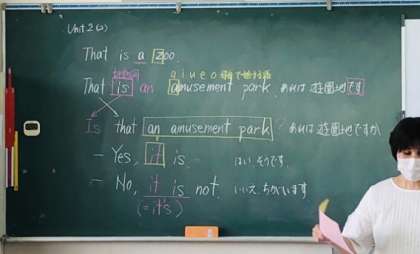 Unit 2 (2)
That is a zoo.
a i u e o で始まる語
That is an amusement park. あれは遊園地です
Is that an amusement park? あれは遊園地ですか
– Yes, it is. はい、そうです
– No, it is not. いいえ、ちがいます
(= it's)